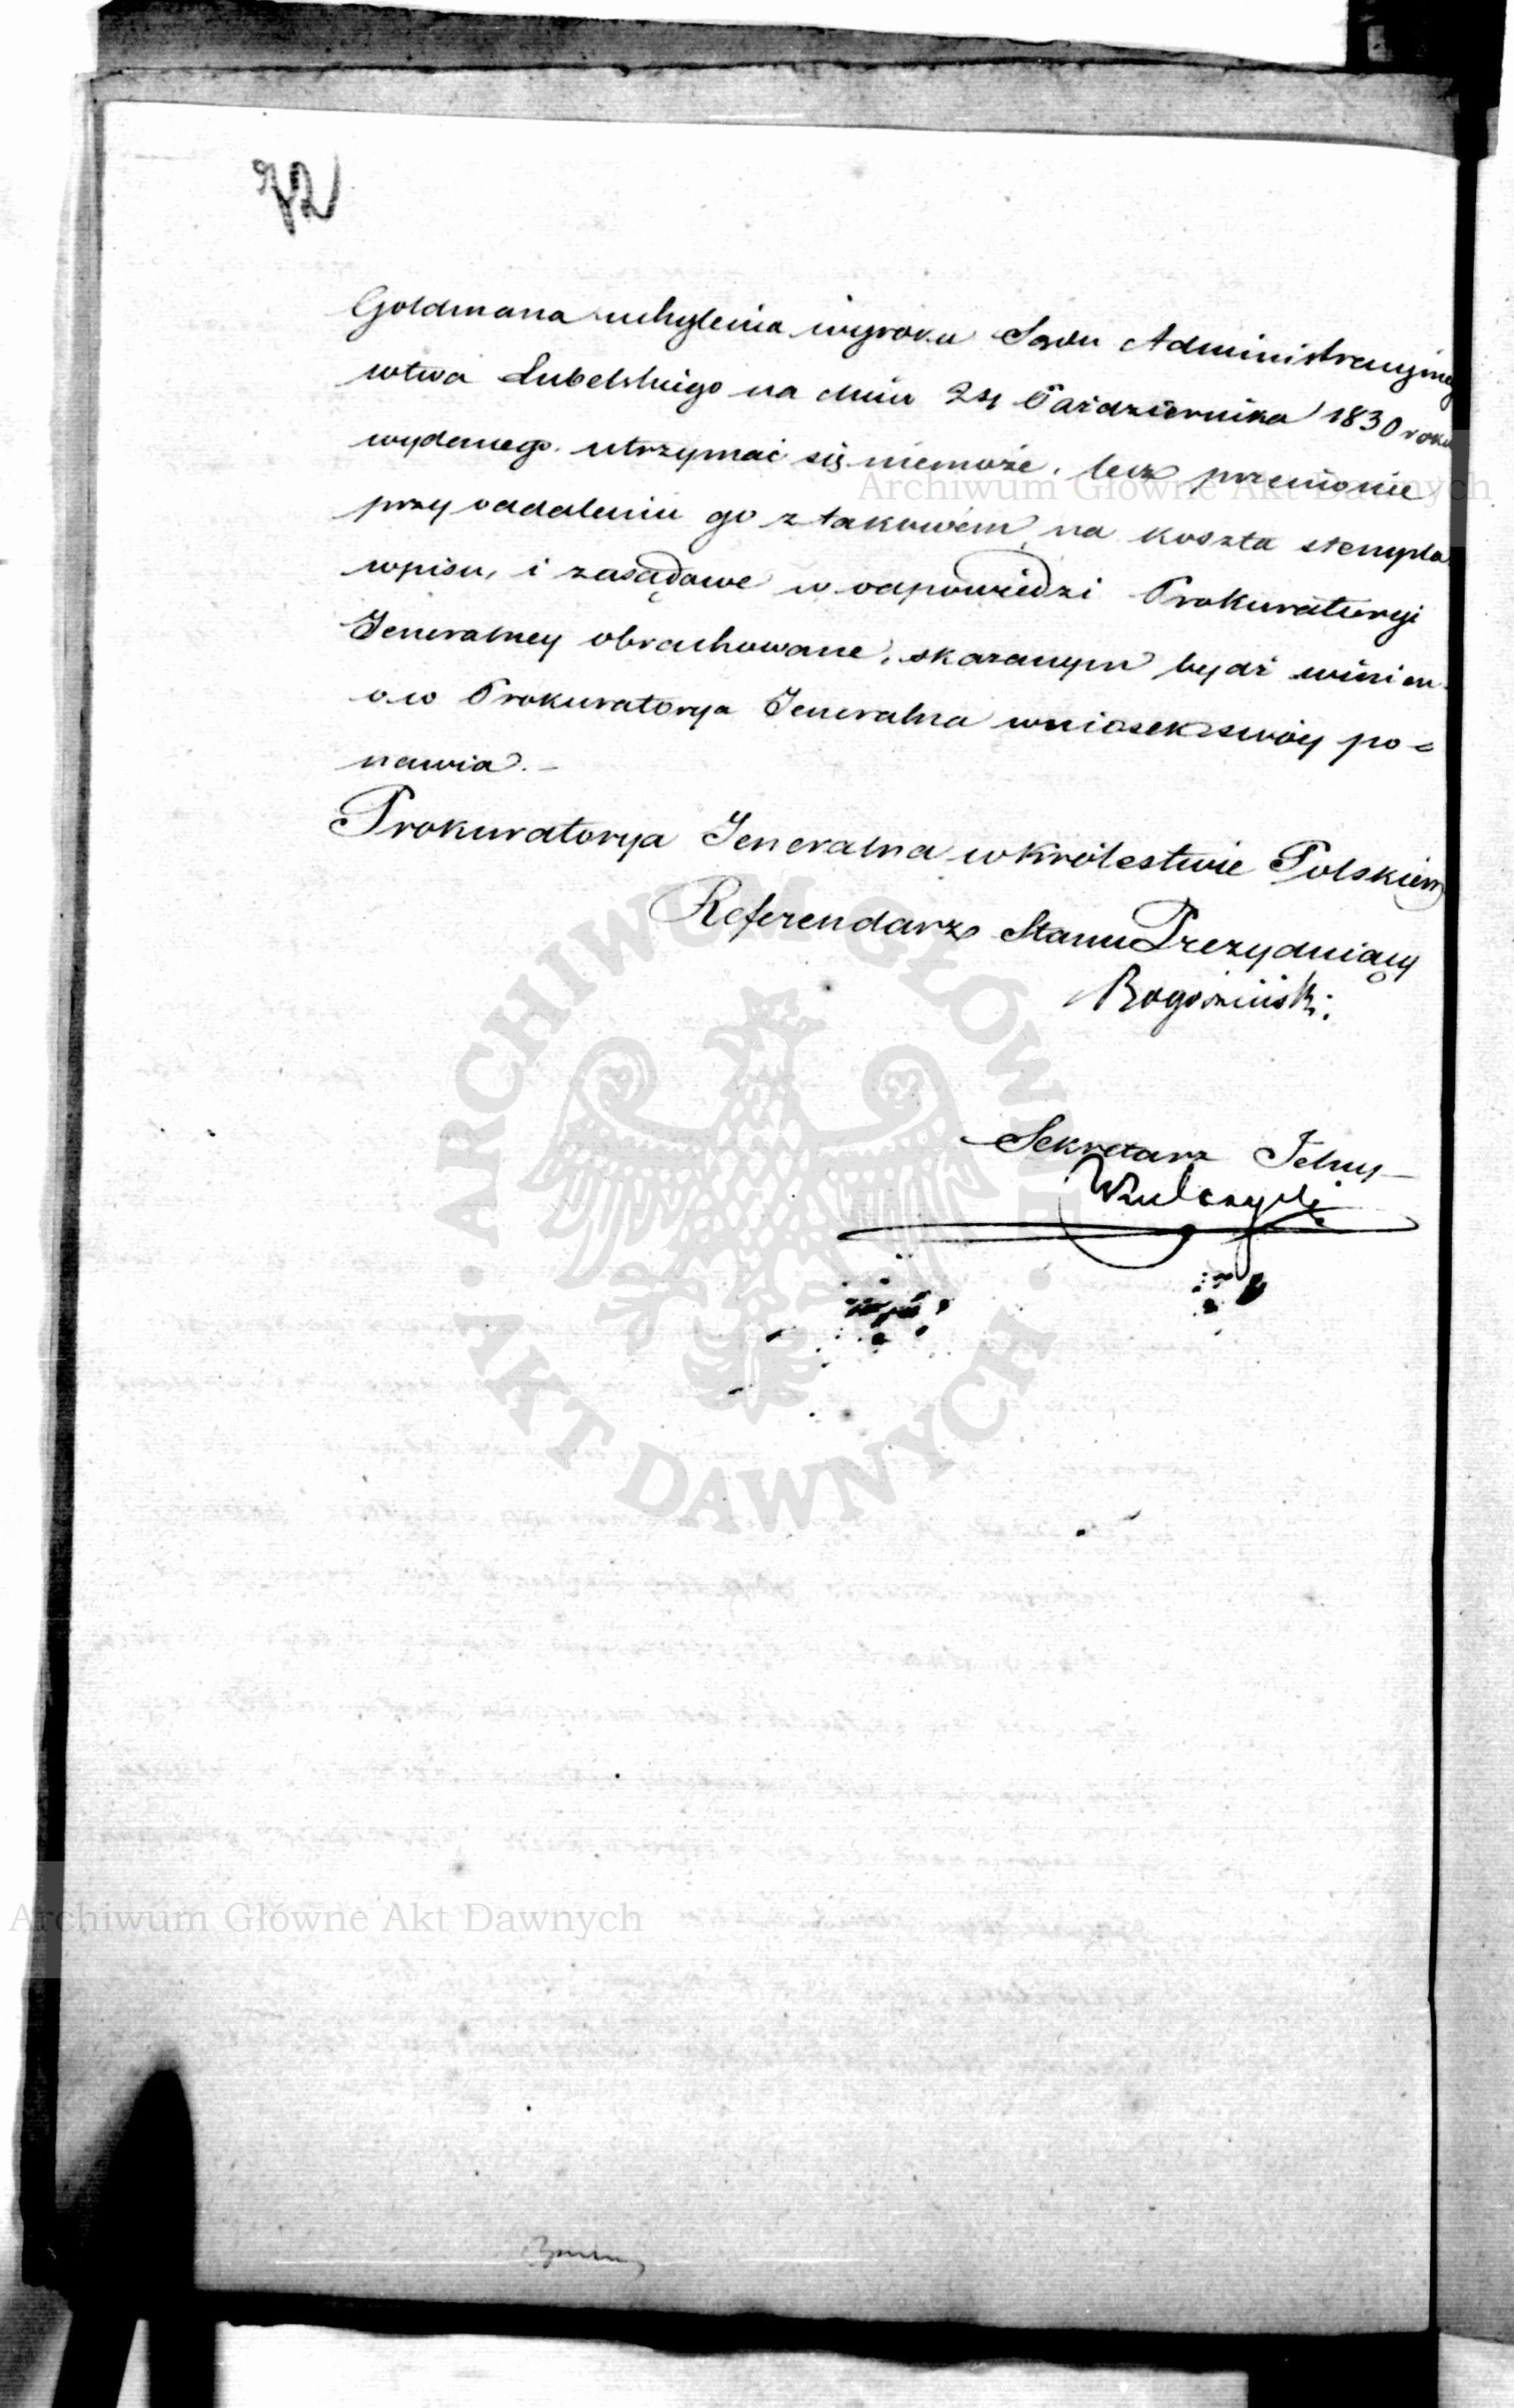 72
Goldmana uchylenia wyroku Sądu Administracyjney
wtwa Lubelskiego na dniu 24 Października 1830 roku
wydanego. utrzymać się niemoże. lecz przeciwnie
przy oddaleniu go z takowem, na koszta stempla
wpisu, i zasądowe w odpowiedzi Prokuratoryi
Jeneralney obrachowane, skazanym bydź winien
o.w Prokuratorya Jeneralna wniosek swóy po=
nawia. –
Prokuratorya Jeneralna w Królestwie Polskiem
Referendarz Stanu Prezyduiący
Sekretarz Jelny
Archiwum Główne Akt Dawnych
ARCHIWUM GŁÓWNE · AKT DAWNYCH ·
Archiwum Główne Akt Dawnych